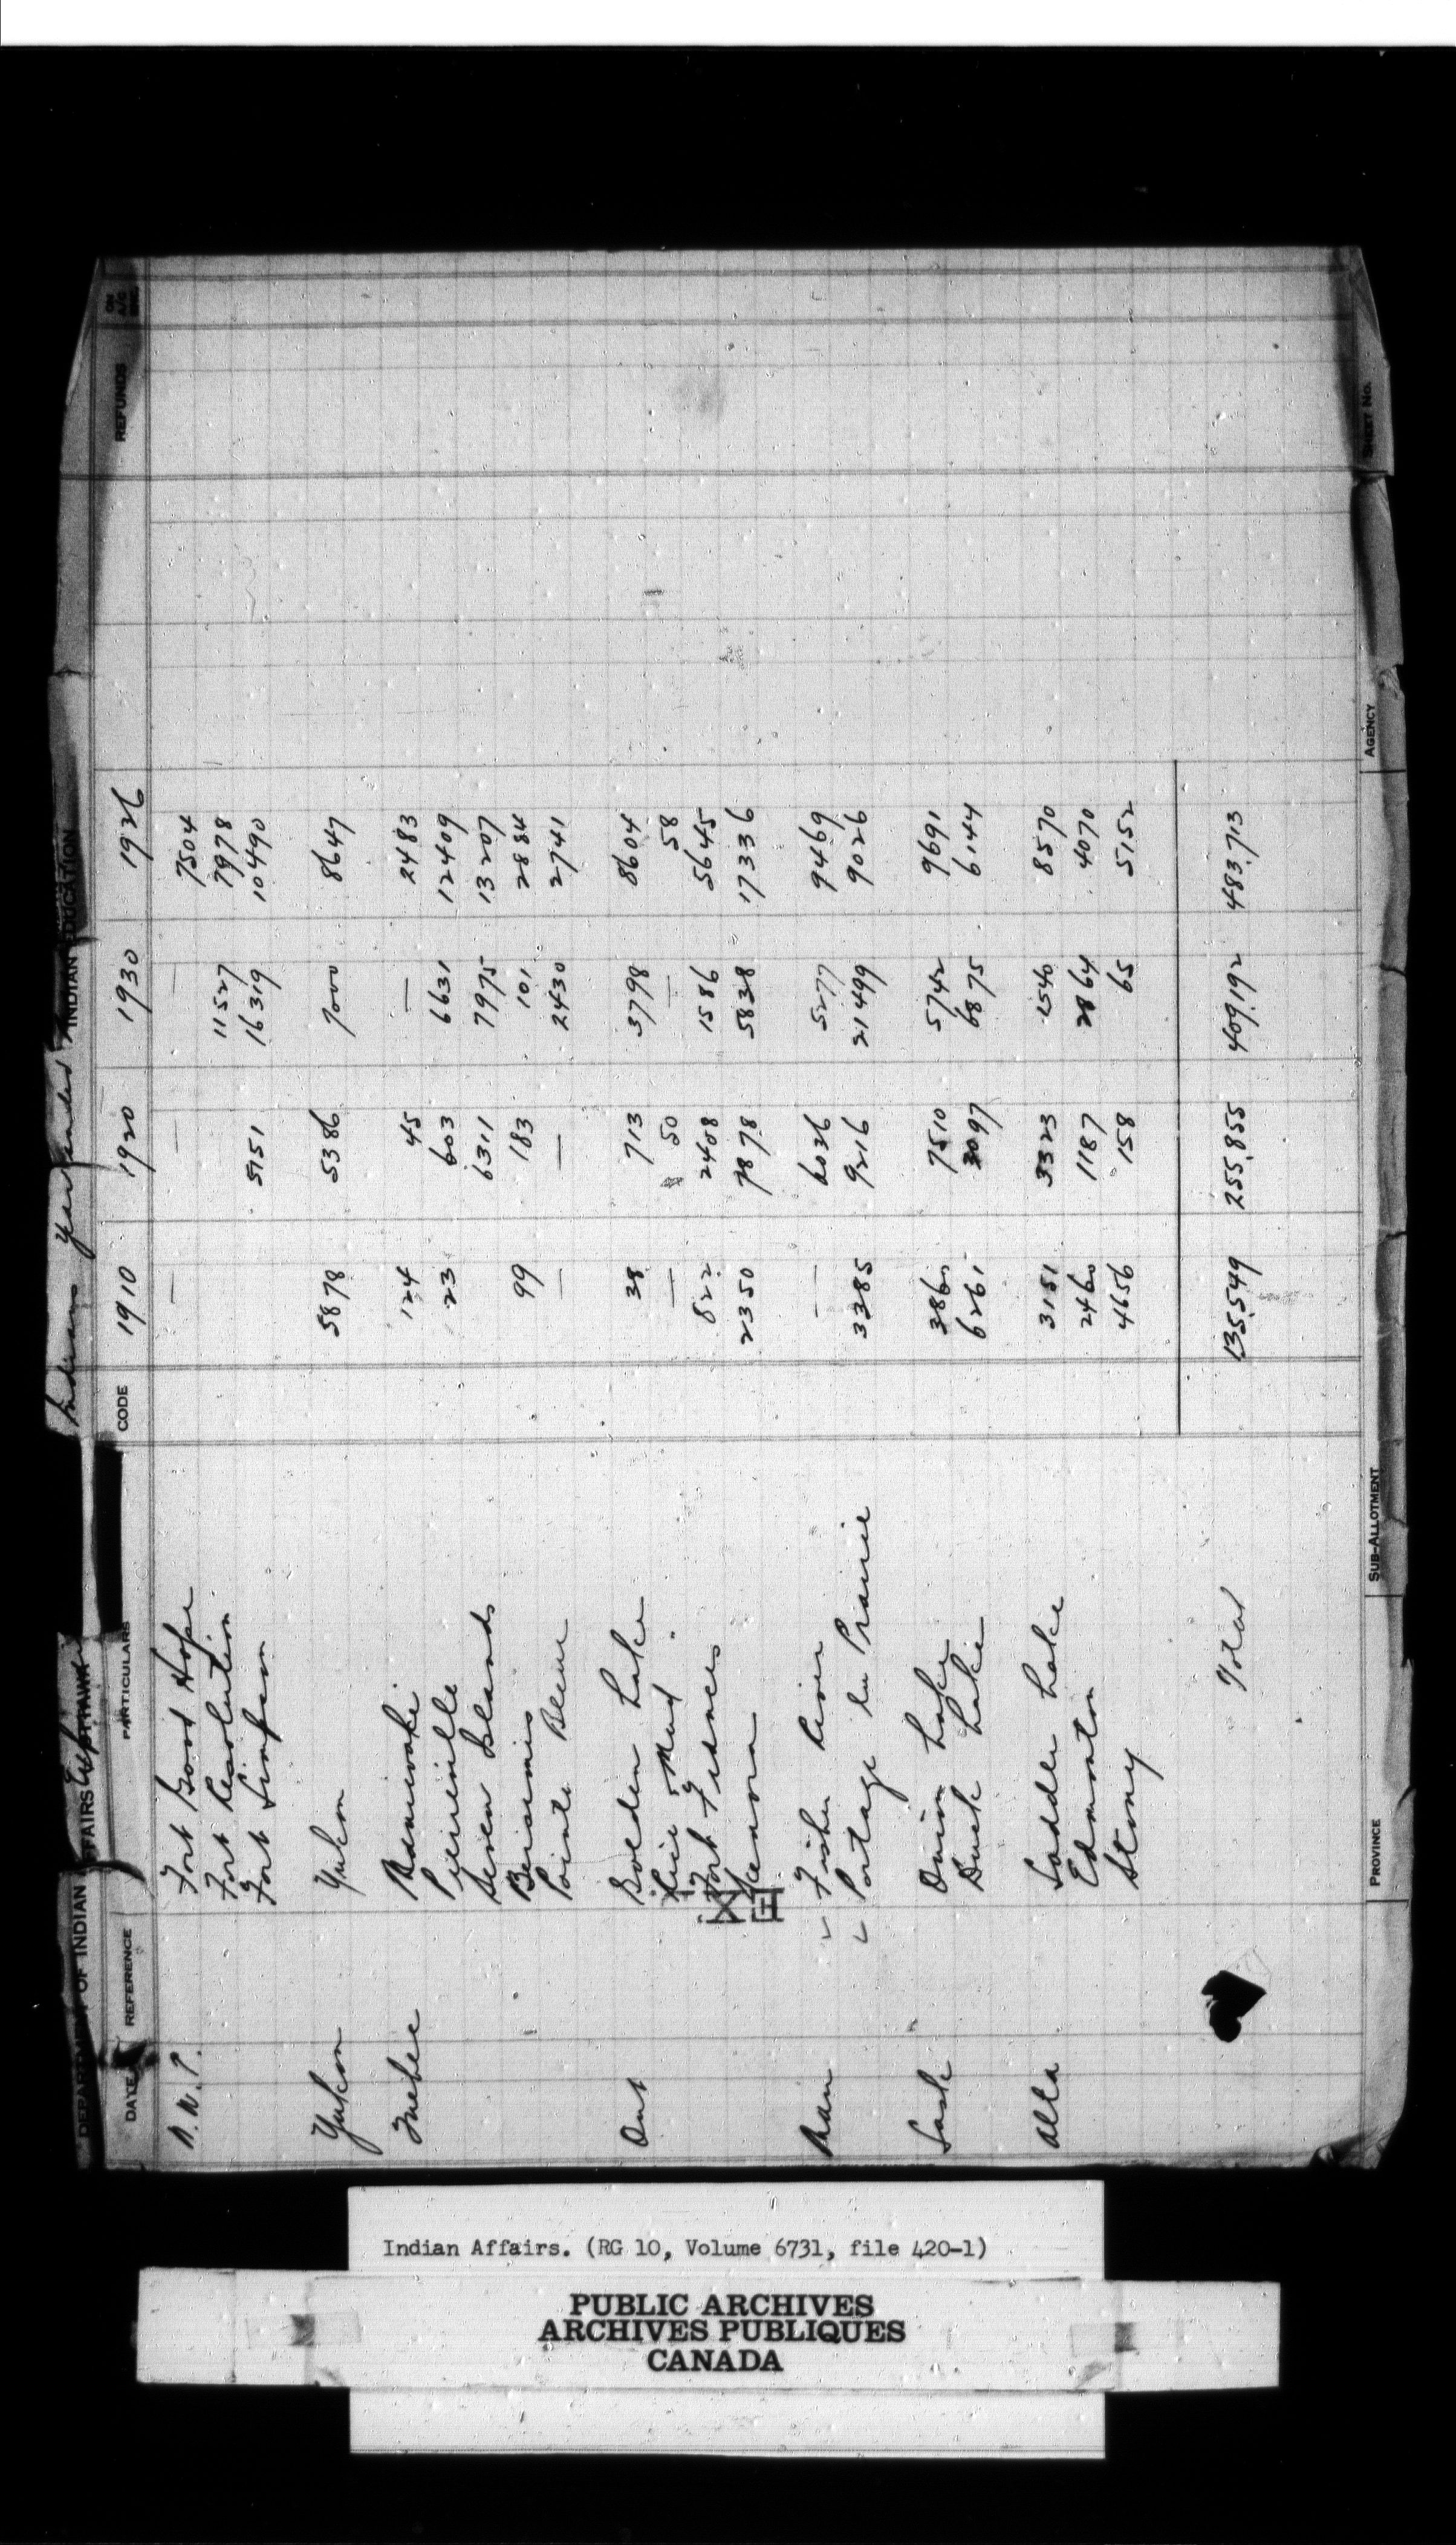 DEPARTMENT OF INDIAN AFFAIRS
INDIAN EDUCATION
Indians year ended
DATE REFERENCE PARTICULARS CODE 1910 1920 1930 1936 REFUNDS
N.W.T. Fort Good Hope — — — 7504
Fort Resolution 11527 7978
Fort Simpson 5151 16319 10490
Yukon Yukon 5878 5386 7000 8647
Quebec Maniwaki 124 45 — 2483
Pierreville 23 603 6631 12409
Seven Islands 6311 7975 13207
Bersimis 99 183 101 2884
Pointe Bleue — — 2430 2741
Ont Golden Lake 38 713 3798 8604
Rice & Mud " — 50 — 58
Fort Frances 822 2408 1586 5645
Kenora 2350 7878 5838 17336
EX.
Man Fisher River — 6036 5277 9469
Portage la Prairie 3385 9216 21499 9026
Sask Onion Lake 3860 7510 5742 9691
Duck Lake 6261 3097 6875 6144
Alta Saddle Lake 3151 3323 1540 8570
Edmonton 2460 1187 2864 4070
Stony 4656 158 65 5152
Total 135,549 255,855 409,192 483,713
PROVINCE SUB-ALLOTMENT AGENCY SHEET NO.
Indian Affairs. (RG 10, Volume 6731, file 420-1)
PUBLIC ARCHIVES
ARCHIVES PUBLIQUES
CANADA